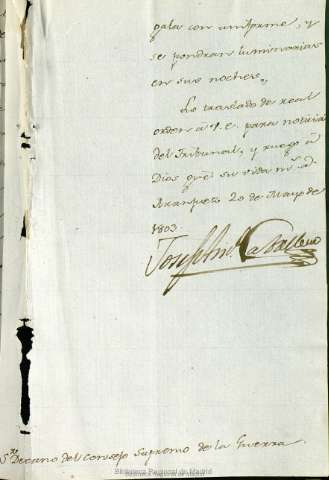 gala con uniforme, y
se pondran luminarias
en sus noches.
Lo traslado de real
orden a V.E. para noticia
del Tribunal, y ruego á
Dios gue su vida ms as
Aranjuez 20 de Mayo de
1803.
Josef Anto Caballero
Sor Decano del Consejo Supremo de la Guerra.
Biblioteca Regional de Madrid